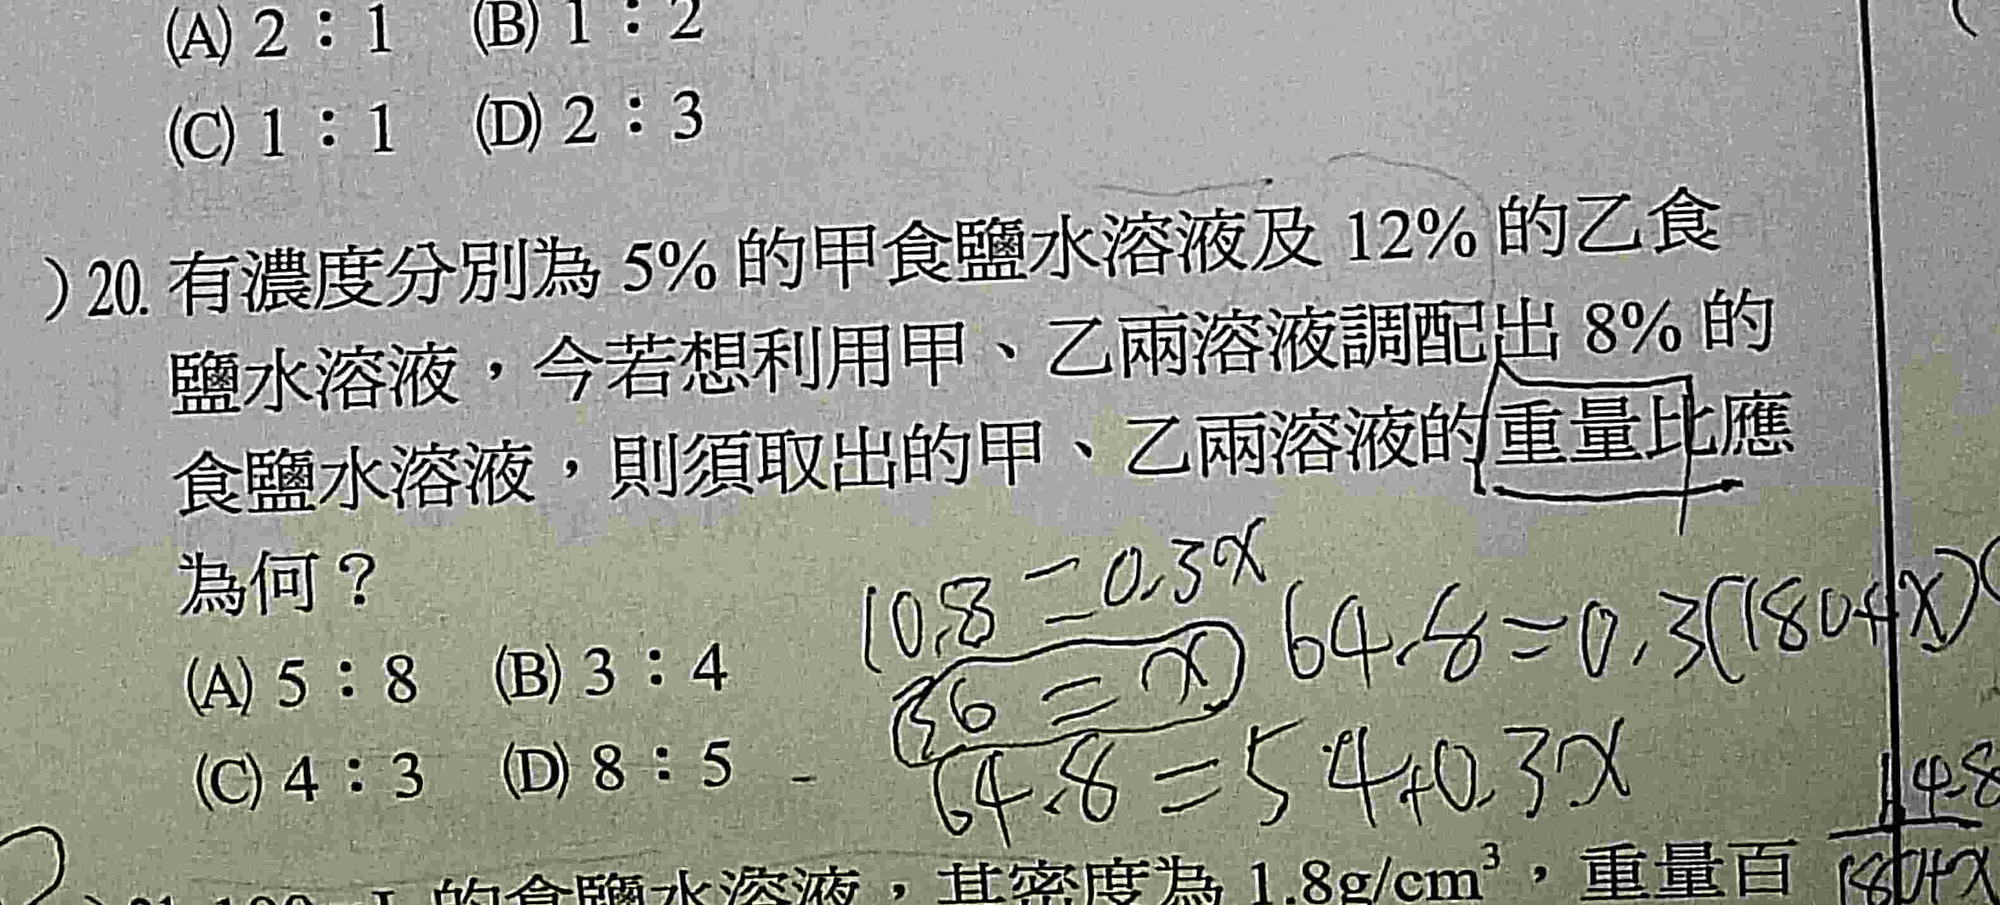 (A) 2：1 (B) 1：2
(C) 1：1 (D) 2：3
)20. 有濃度分別為 5% 的甲食鹽水溶液及 12% 的乙食
鹽水溶液，今若想利用甲、乙兩溶液調配出 8% 的
食鹽水溶液，則須取出的甲、乙兩溶液的重量比應
為何？
10.8=0.3x
64.8=0.3(180+x)
(A) 5：8 (B) 3：4
36=x
(C) 4：3 (D) 8：5
64.8=54+0.3x
180+x
的食鹽水溶液，其密度為 1.8g/cm³，重量百